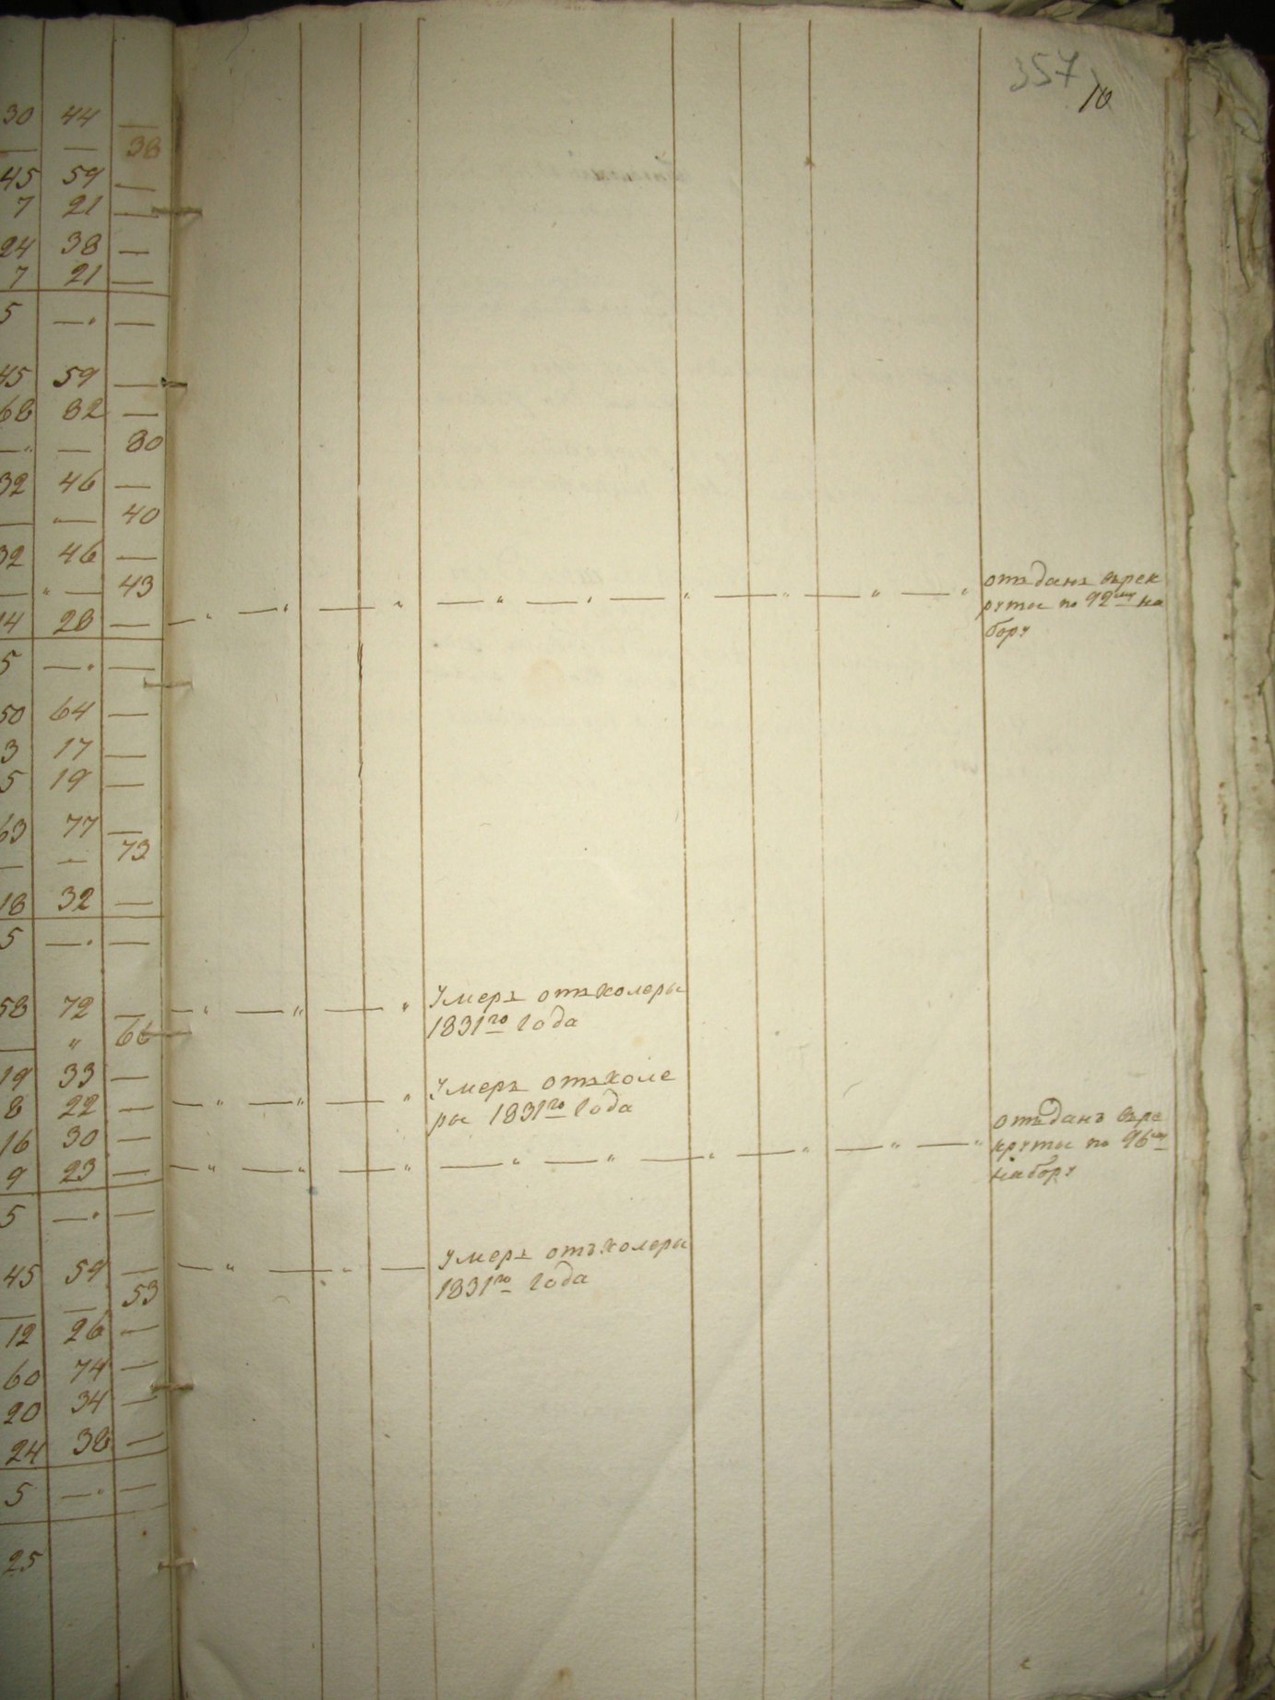 357
10
30 44 —
— — 38
45 59 —
7 21 —
24 38 —
7 21 —
5 — —
45 59 —
68 82 —
— — 80
32 46 —
— — 40
32 46 —
— — 43
14 28 —
отъданъ врек
руты по 92му на
бору
5 — —
50 64 —
3 17 —
5 19 —
63 77 —
— — 73
18 32 —
5 — —
58 72 —
Умеръ отъ холеры
1831го года
— „ 66
19 33 —
8 22 —
Умеръ отъ холе
ры 1831го года
16 30 —
9 23 —
отъданъ врe
круты по 96му
набору
5 — —
45 59 —
Умеръ отъ холеры
1831го года
— — 53
12 26 —
60 74 —
20 34 —
24 38 —
5 — —
25